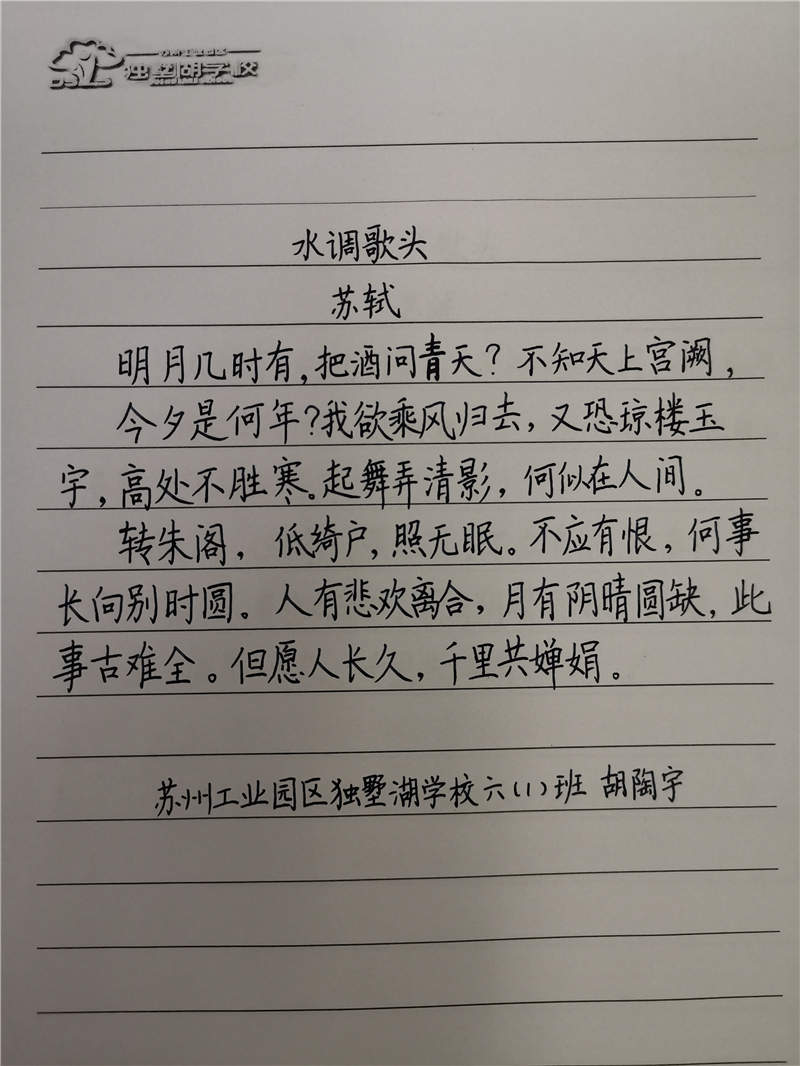 苏州工业园区
独墅湖学校
水调歌头
苏轼
明月几时有,把酒问青天?不知天上宫阙,
今夕是何年?我欲乘风归去,又恐琼楼玉
宇,高处不胜寒。起舞弄清影,何似在人间。
转朱阁,低绮户,照无眠。不应有恨,何事
长向别时圆。人有悲欢离合,月有阴晴圆缺,此
事古难全。但愿人长久,千里共婵娟。
苏州工业园区独墅湖学校六(1)班 胡陶宇